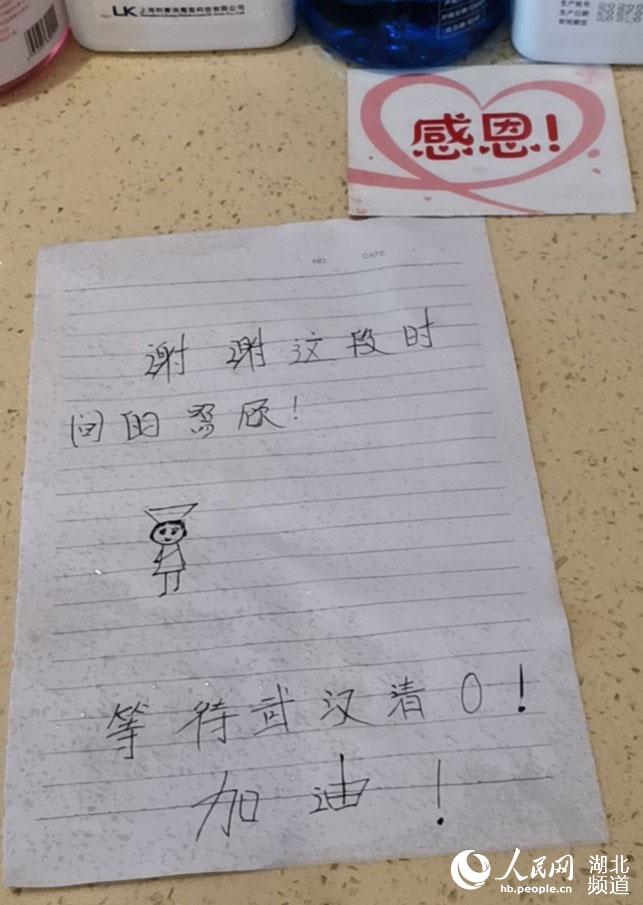 LK 上海利康消毒高科技有限公司
生产批号
生产日期
有效期至
感恩!
NO. DATE
谢谢这段时
间的照顾!
等待武汉清0!
加油!
人民网 湖北频道
hb.people.cn